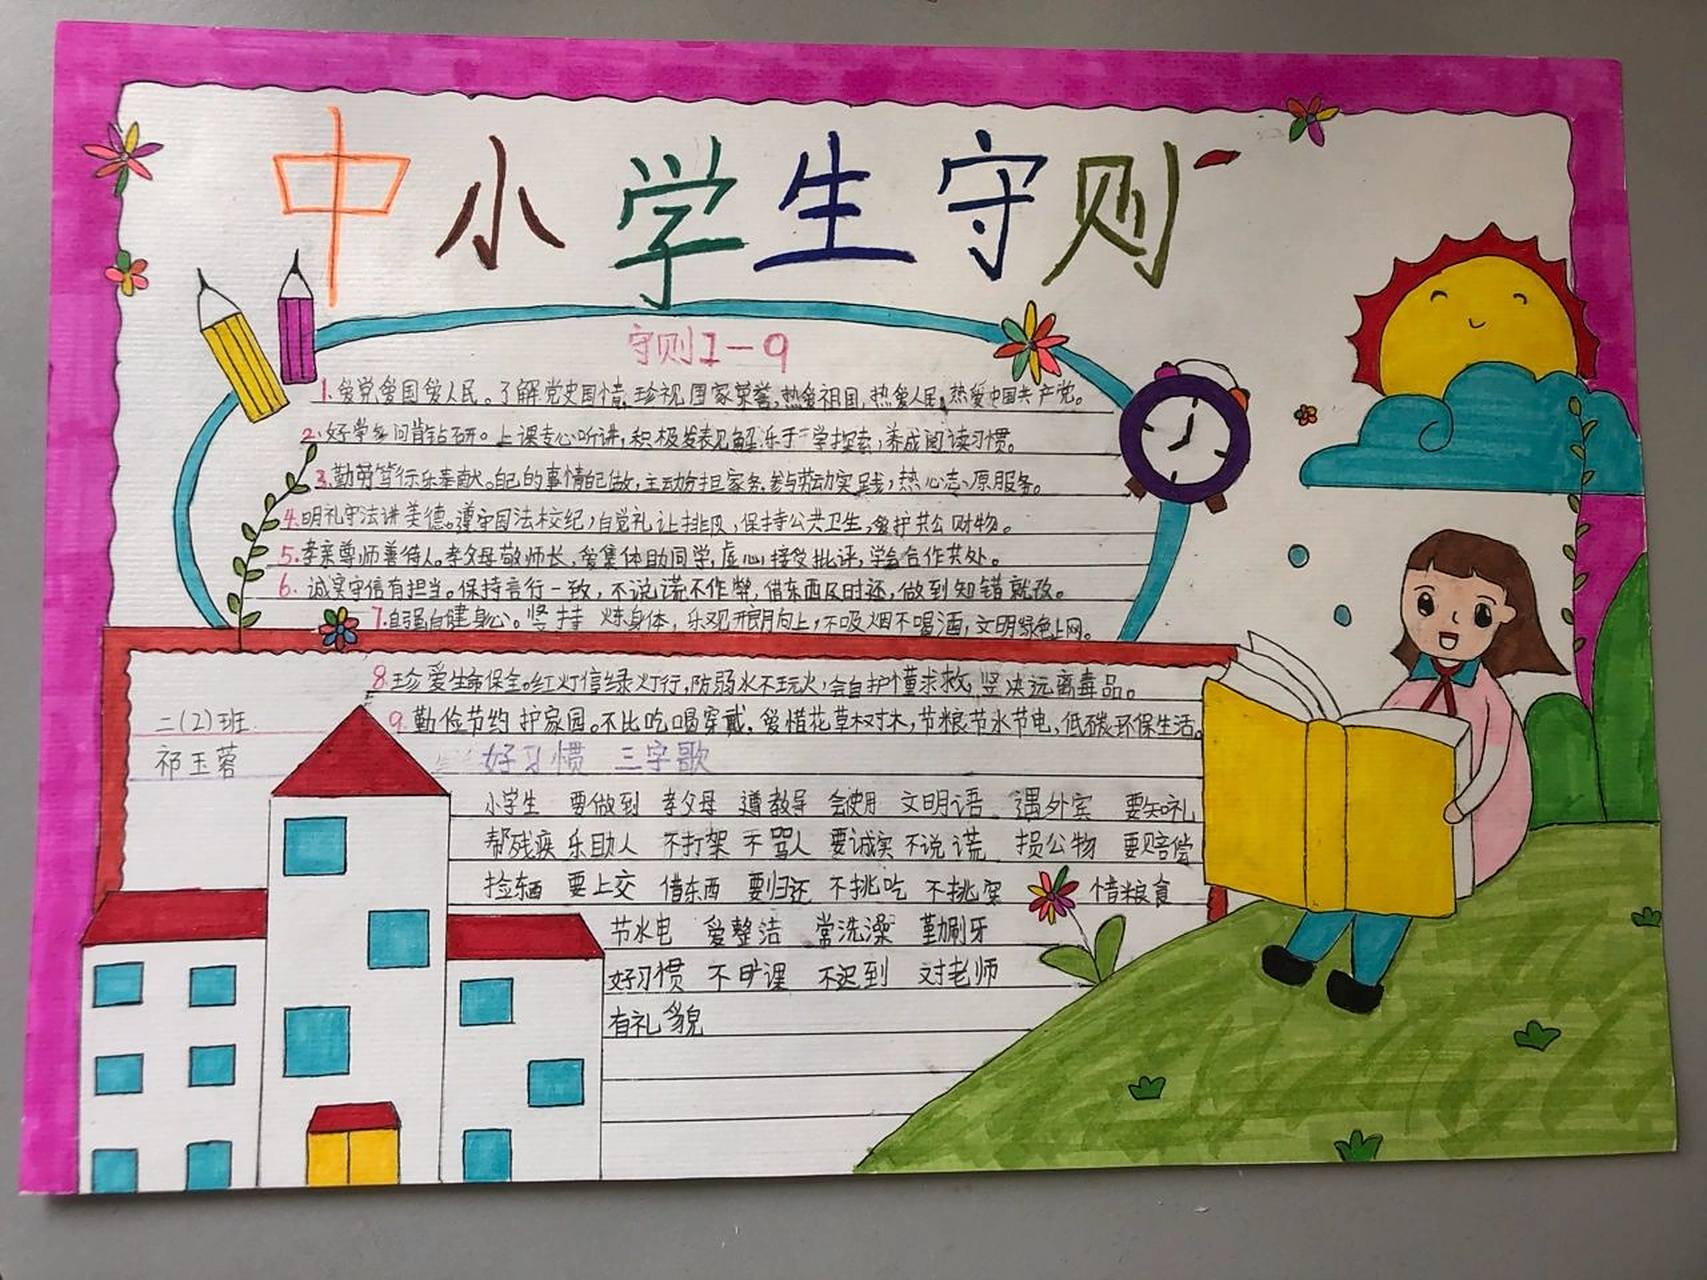 中小学生守则
守则1-9
1.爱党爱国爱人民。了解党史国情,珍视国家荣誉,热爱祖国,热爱人民,热爱中国共产党。
2.好学多问肯钻研。上课专心听讲,积极发表见解,乐于学探索,养成阅读习惯。
3.勤劳笃行乐奉献。自己的事情自己做,主动分担家务,参与劳动实践,热心志愿服务。
4.明礼守法讲美德。遵守国法校纪,自觉礼让排队,保持公共卫生,爱护公共财物。
5.孝亲尊师善待人。孝父母敬师长,爱集体助同学,虚心接受批评,学会合作共处。
6.诚实守信有担当。保持言行一致,不说谎不作弊,借东西及时还,做到知错就改。
7.自强自健身心。坚持 炼身体,乐观开朗向上,不吸烟不喝酒,文明绿色上网。
8.珍爱生命保安全。红灯停绿灯行,防溺水不玩火,会自护懂求救,坚决远离毒品。
9.勤俭节约护家园。不比吃喝穿戴,爱惜花草树木,节粮节水节电,低碳环保生活。
二(2)班
祁玉蓉
好习惯 三字歌
小学生 要做到 孝父母 遵教导 会使用 文明语 遇外宾 要知礼
帮残疾 乐助人 不打架 不骂人 要诚实 不说谎 损公物 要赔偿
捡东西 要上交 借东西 要归还 不挑吃 不挑穿 惜粮食
节水电 爱整洁 常洗澡 勤刷牙
好习惯 不旷课 不迟到 对老师
有礼貌